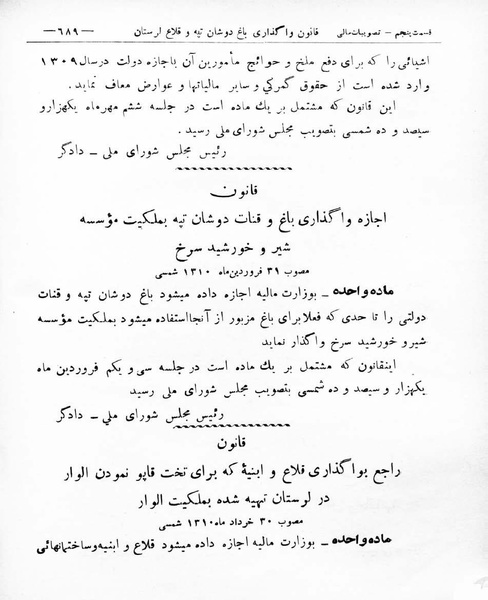 قسمت پنجم – تصویبات مالی   قانون واگذاری باغ دوشان تپه و قلاع لرستان   —۶۸۹—
اشیائی را که برای دفع ملخ و حوائج مأمورین آن باجازه دولت درسال ۱۳۰۹
وارد شده است از حقوق گمرکی و سایر مالیاتها و عوارض معاف نماید.
این قانون که مشتمل بر یك ماده است در جلسه ششم مهرماه یکهزارو
سیصد و ده شمسی بتصویب مجلس شورای ملی رسید.
رئیس مجلس شورای ملی – دادگر
قانون
اجازه واگذاری باغ و قنات دوشان تپه بملکیت مؤسسه
شیر و خورشید سرخ
مصوب ۳۱ فروردین‌ماه ۱۳۱۰ شمسی
ماده واحده – بوزارت مالیه اجازه داده میشود باغ دوشان تپه و قنات
دولتی را تا حدی که فعلا برای باغ مزبور از آنجا استفاده میشود بملکیت مؤسسه
شیر و خورشید سرخ واگذار نماید
اینقانون که مشتمل بر یك ماده است در جلسه سی و یکم فروردین ماه
یکهزار و سیصد و ده شمسی بتصویب مجلس شورای ملی رسید
رئیس مجلس شورای ملی – دادگر
قانون
راجع بواگذاری قلاع و ابنیهٔ که برای تخت قاپو نمودن الوار
در لرستان تهیه شده بملکیت الوار
مصوب ۳۰ خرداد ماه ۱۳۱۰ شمسی
ماده واحده – بوزارت مالیه اجازه داده میشود قلاع و ابنیه و ساختمانهائی